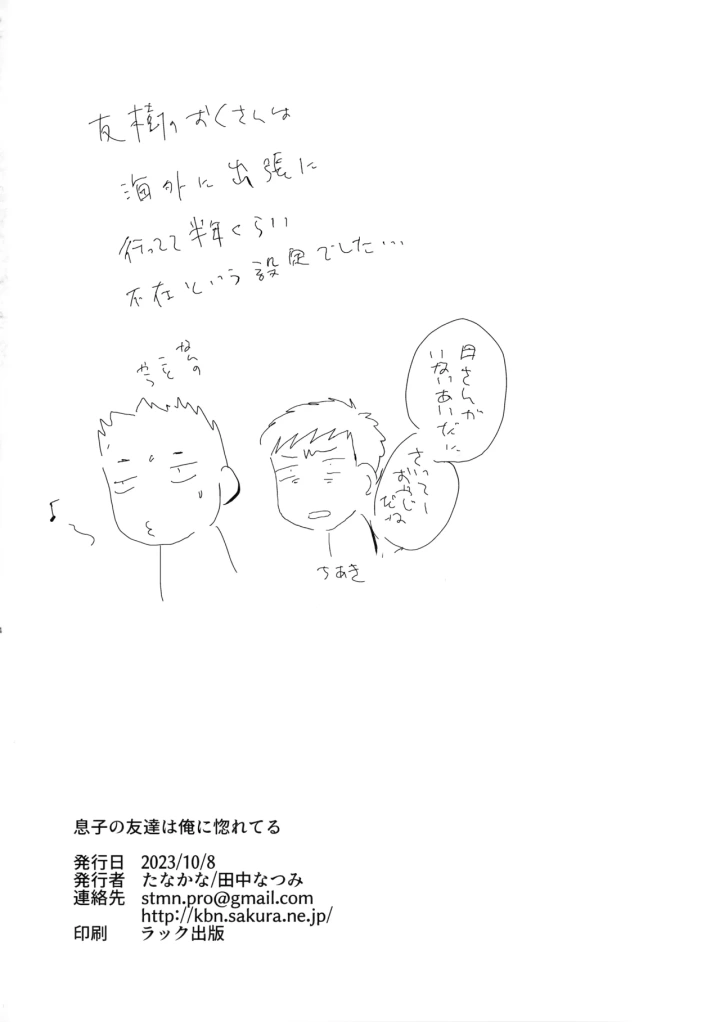 友樹のおくさんは
海外に出張に
行ってて半年くらい
不在という設定でした…
なんの
ことやら
母さんが
いないあいだに
さいってー
おやじ
だな
ちあき
息子の友達は俺に惚れてる
発行日 2023/10/8
発行者 たなかな/田中なつみ
連絡先 stmn.pro@gmail.com
http://kbn.sakura.ne.jp/
印刷 ラック出版